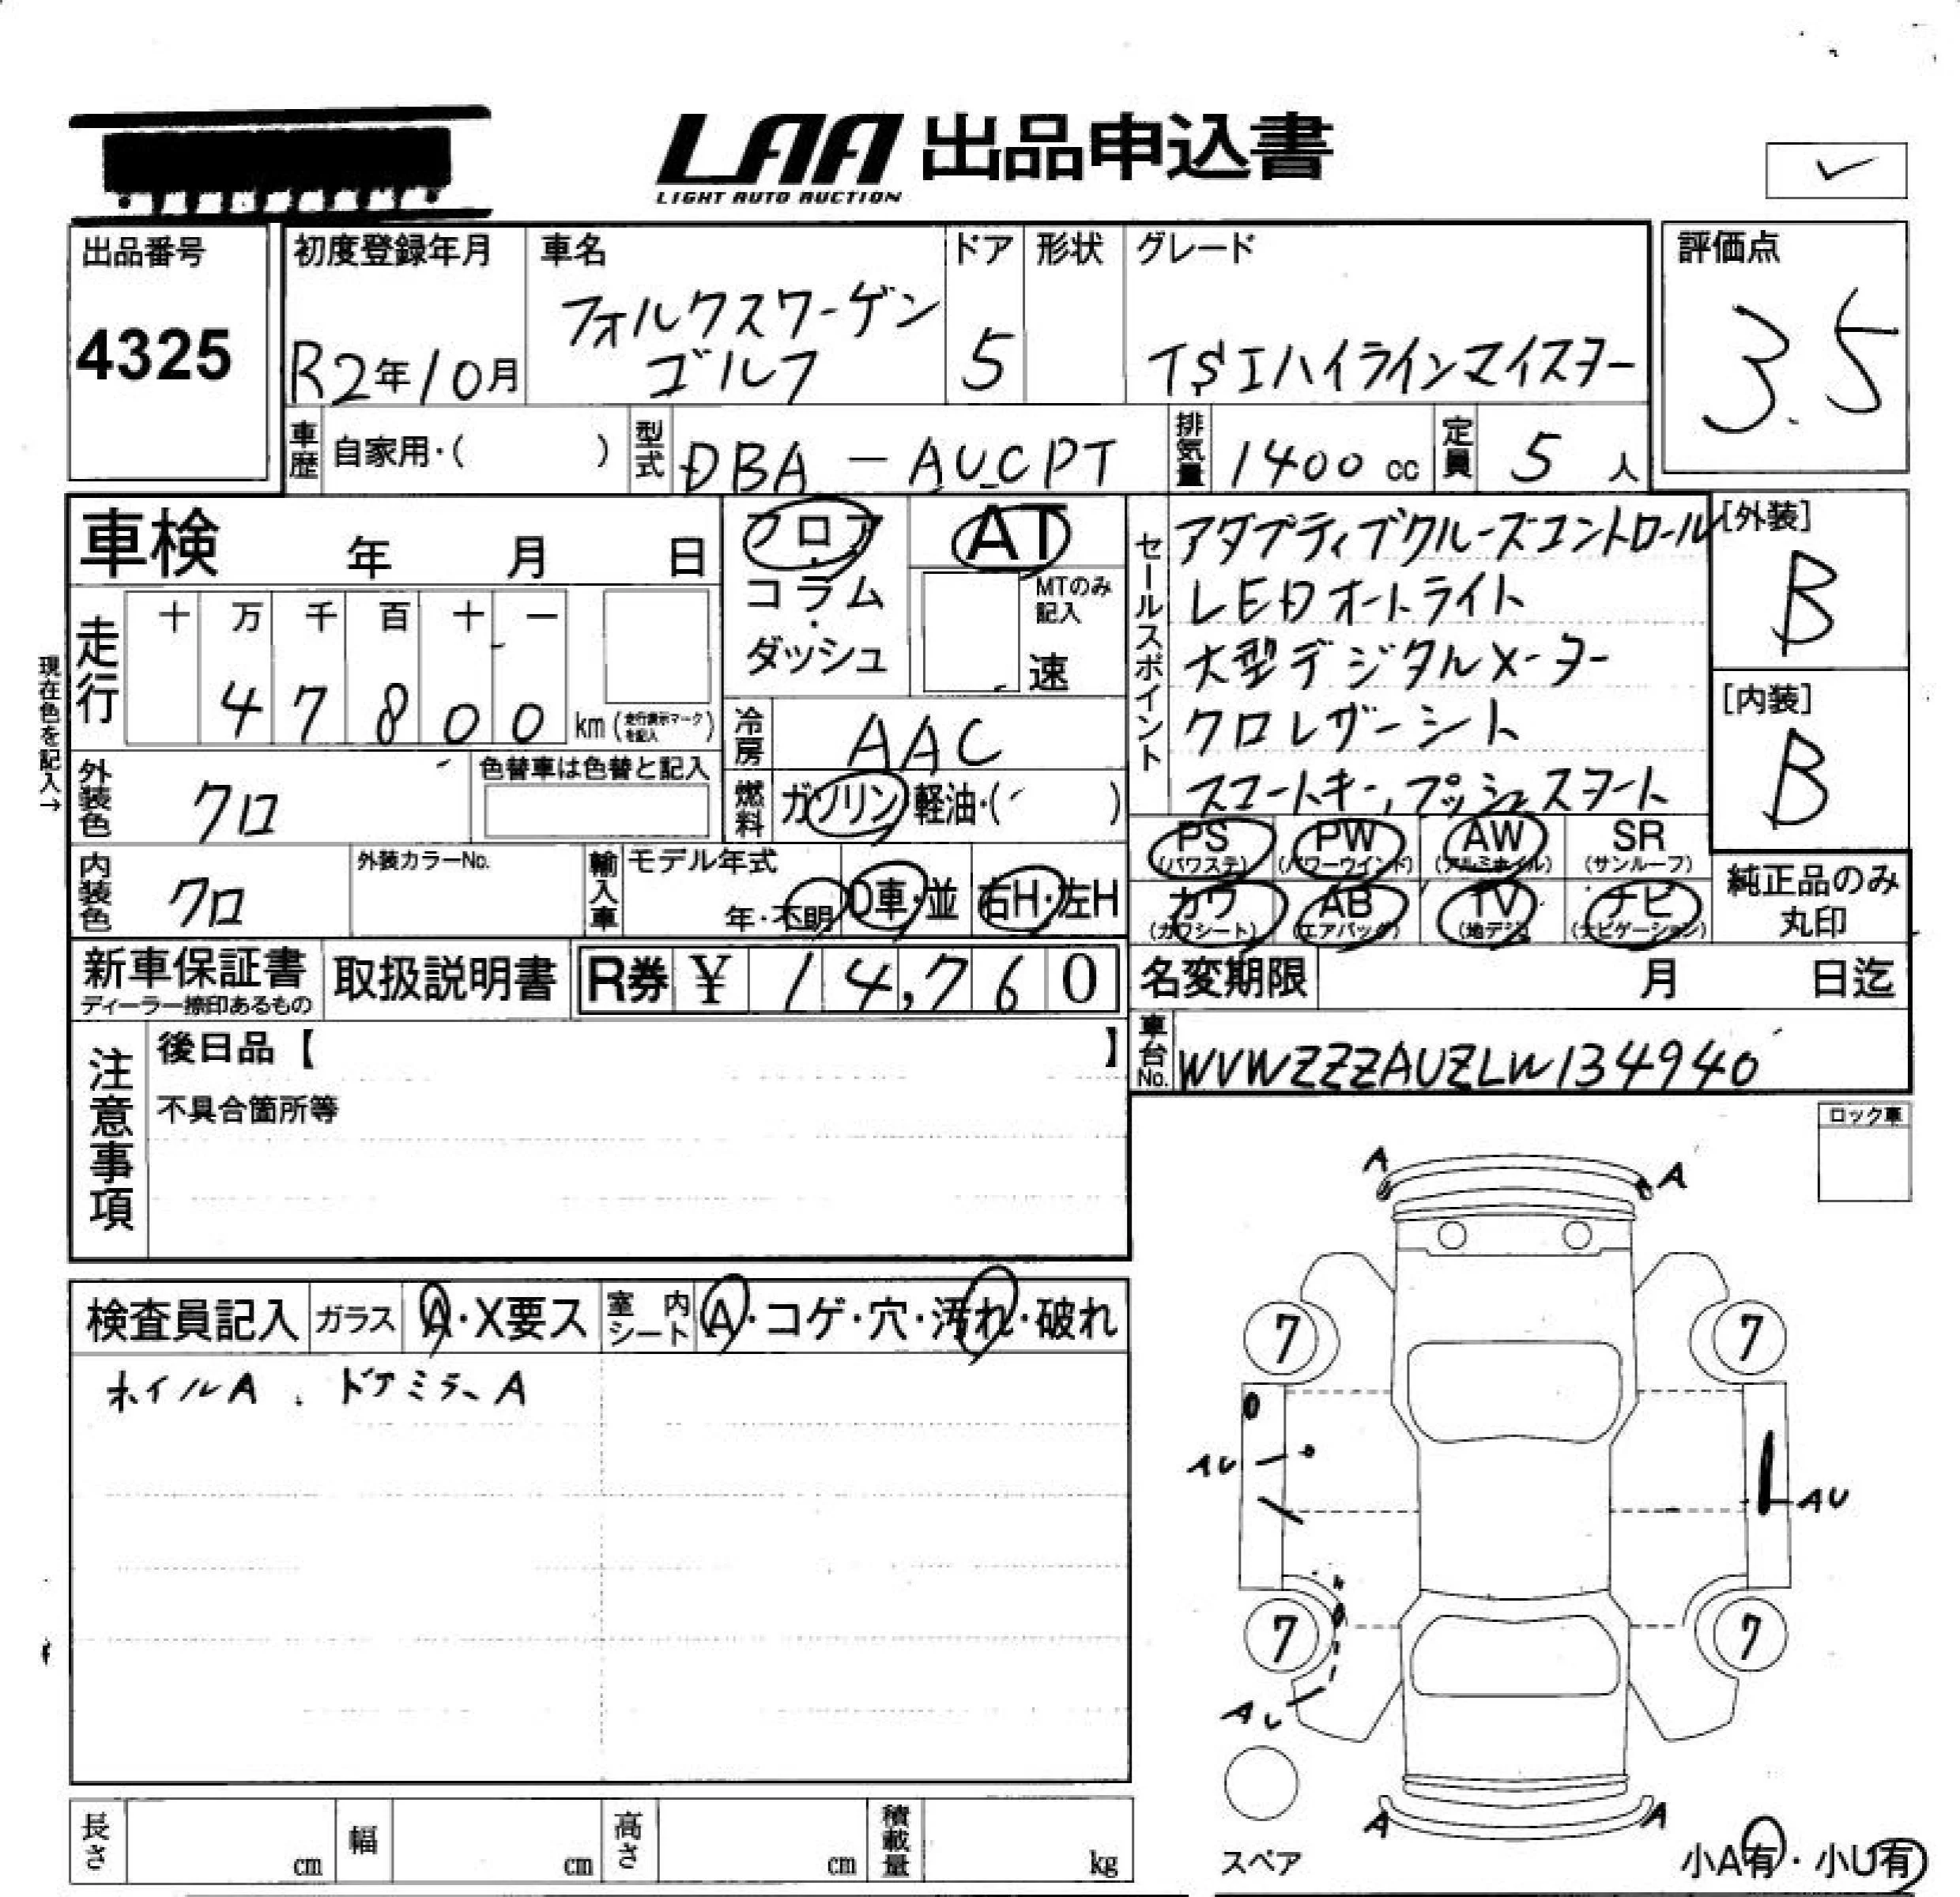 LAA 出品申込書
LIGHT AUTO AUCTION
出品番号
4325
初度登録年月
R2年10月
車名
フォルクスワーゲン
ゴルフ
ドア
5
形状
グレード
TSIハイラインマイスター
評価点
3.5
車歴 自家用・( )
型式 DBA-AUCPT
排気量 1400 cc
定員 5 人
車検 年 月 日
フロア・コラム・ダッシュ
AT
MTのみ記入
速
セールスポイント
アダプティブクルーズコントロール
LEDオートライト
大型デジタルメーター
クロレザーシート
スマートキー,プッシュスタート
[外装]
B
[内装]
B
現在色を記入→
走行
十 万 千 百 十 一
4 7 8 0 0 km (走行表示マークを記入)
冷房 AAC
外装色 クロ
色替車は色替と記入
燃料 ガソリン・軽油・( )
PS (パワステ)
PW (パワーウインド)
AW (アルミホイル)
SR (サンルーフ)
カワ (カワシート)
AB (エアバッグ)
TV (地デジ)
ナビ (ナビゲーション)
純正品のみ
丸印
内装色 クロ
外装カラーNo.
輸入車
モデル年式
年・不明
D車・並
右H・左H
新車保証書
ディーラー捺印あるもの
取扱説明書
R券 ¥ 14,760
名変期限 月 日迄
車台No. WVWZZZAUZLW134940
注意事項
後日品【 】
不具合箇所等
ロック車
検査員記入
ガラス A・X要ス
室内シート A・コゲ・穴・汚れ・破れ
ホイルA . ドアミラーA
A
A
7
7
AU
AU
7
7
AU
A
A
スペア
小A有・小U有
長さ cm
幅 cm
高さ cm
積載量 kg